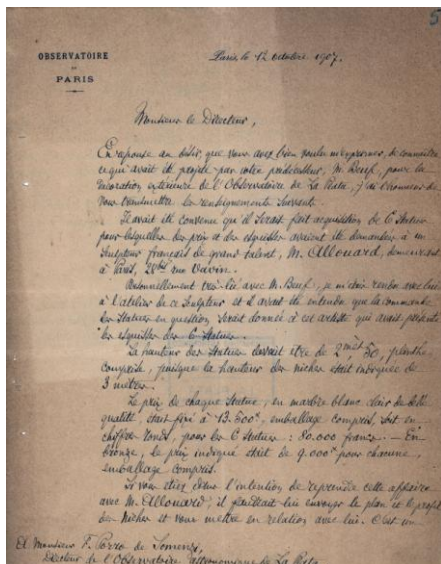 5
OBSERVATOIRE
DE
PARIS
Paris, le 12 octobre 1907.
Monsieur le Directeur,
En réponse au désir que vous avez bien voulu m'exprimer, de connaître
ce qui avait été projeté par votre prédécesseur, M. Beuf, pour la
décoration extérieure de l'Observatoire de La Plata, j'ai l'honneur de
vous transmettre les renseignements suivants.
Il avait été convenu que il serait fait acquisition de 6 statues
pour lesquelles des prix et des esquisses avaient été demandés à un
sculpteur français de grand talent, M. Allouard, demeurant
à Paris, rue Vavin.
Personnellement très lié avec M. Beuf, je m'étais rendu avec lui
à l'atelier de ce sculpteur et il avait été entendu que la commande
des statues en question serait donnée à cet artiste qui avait présenté
les esquisses des 6 statues.
La hauteur des statues devait être de 2 met 50, plinthe
comprise, puisque la hauteur des niches était indiquée de
3 mètres.
Le prix de chaque statue, en marbre blanc clair de belle
qualité, était fixé à 13.500f, emballage compris, soit en
chiffres ronds, pour les 6 statues : 80.000 francs. — En
bronze, le prix indiqué était de 9.000f pour chacune,
emballage compris.
Si vous étiez dans l'intention de reprendre cette affaire
avec M. Allouard, il faudrait lui envoyer le plan et le profil
des niches et vous mettre en relation avec lui. C'est un
A Monsieur F. Porro de Somenzi,
Directeur de l'Observatoire astronomique de La Plata